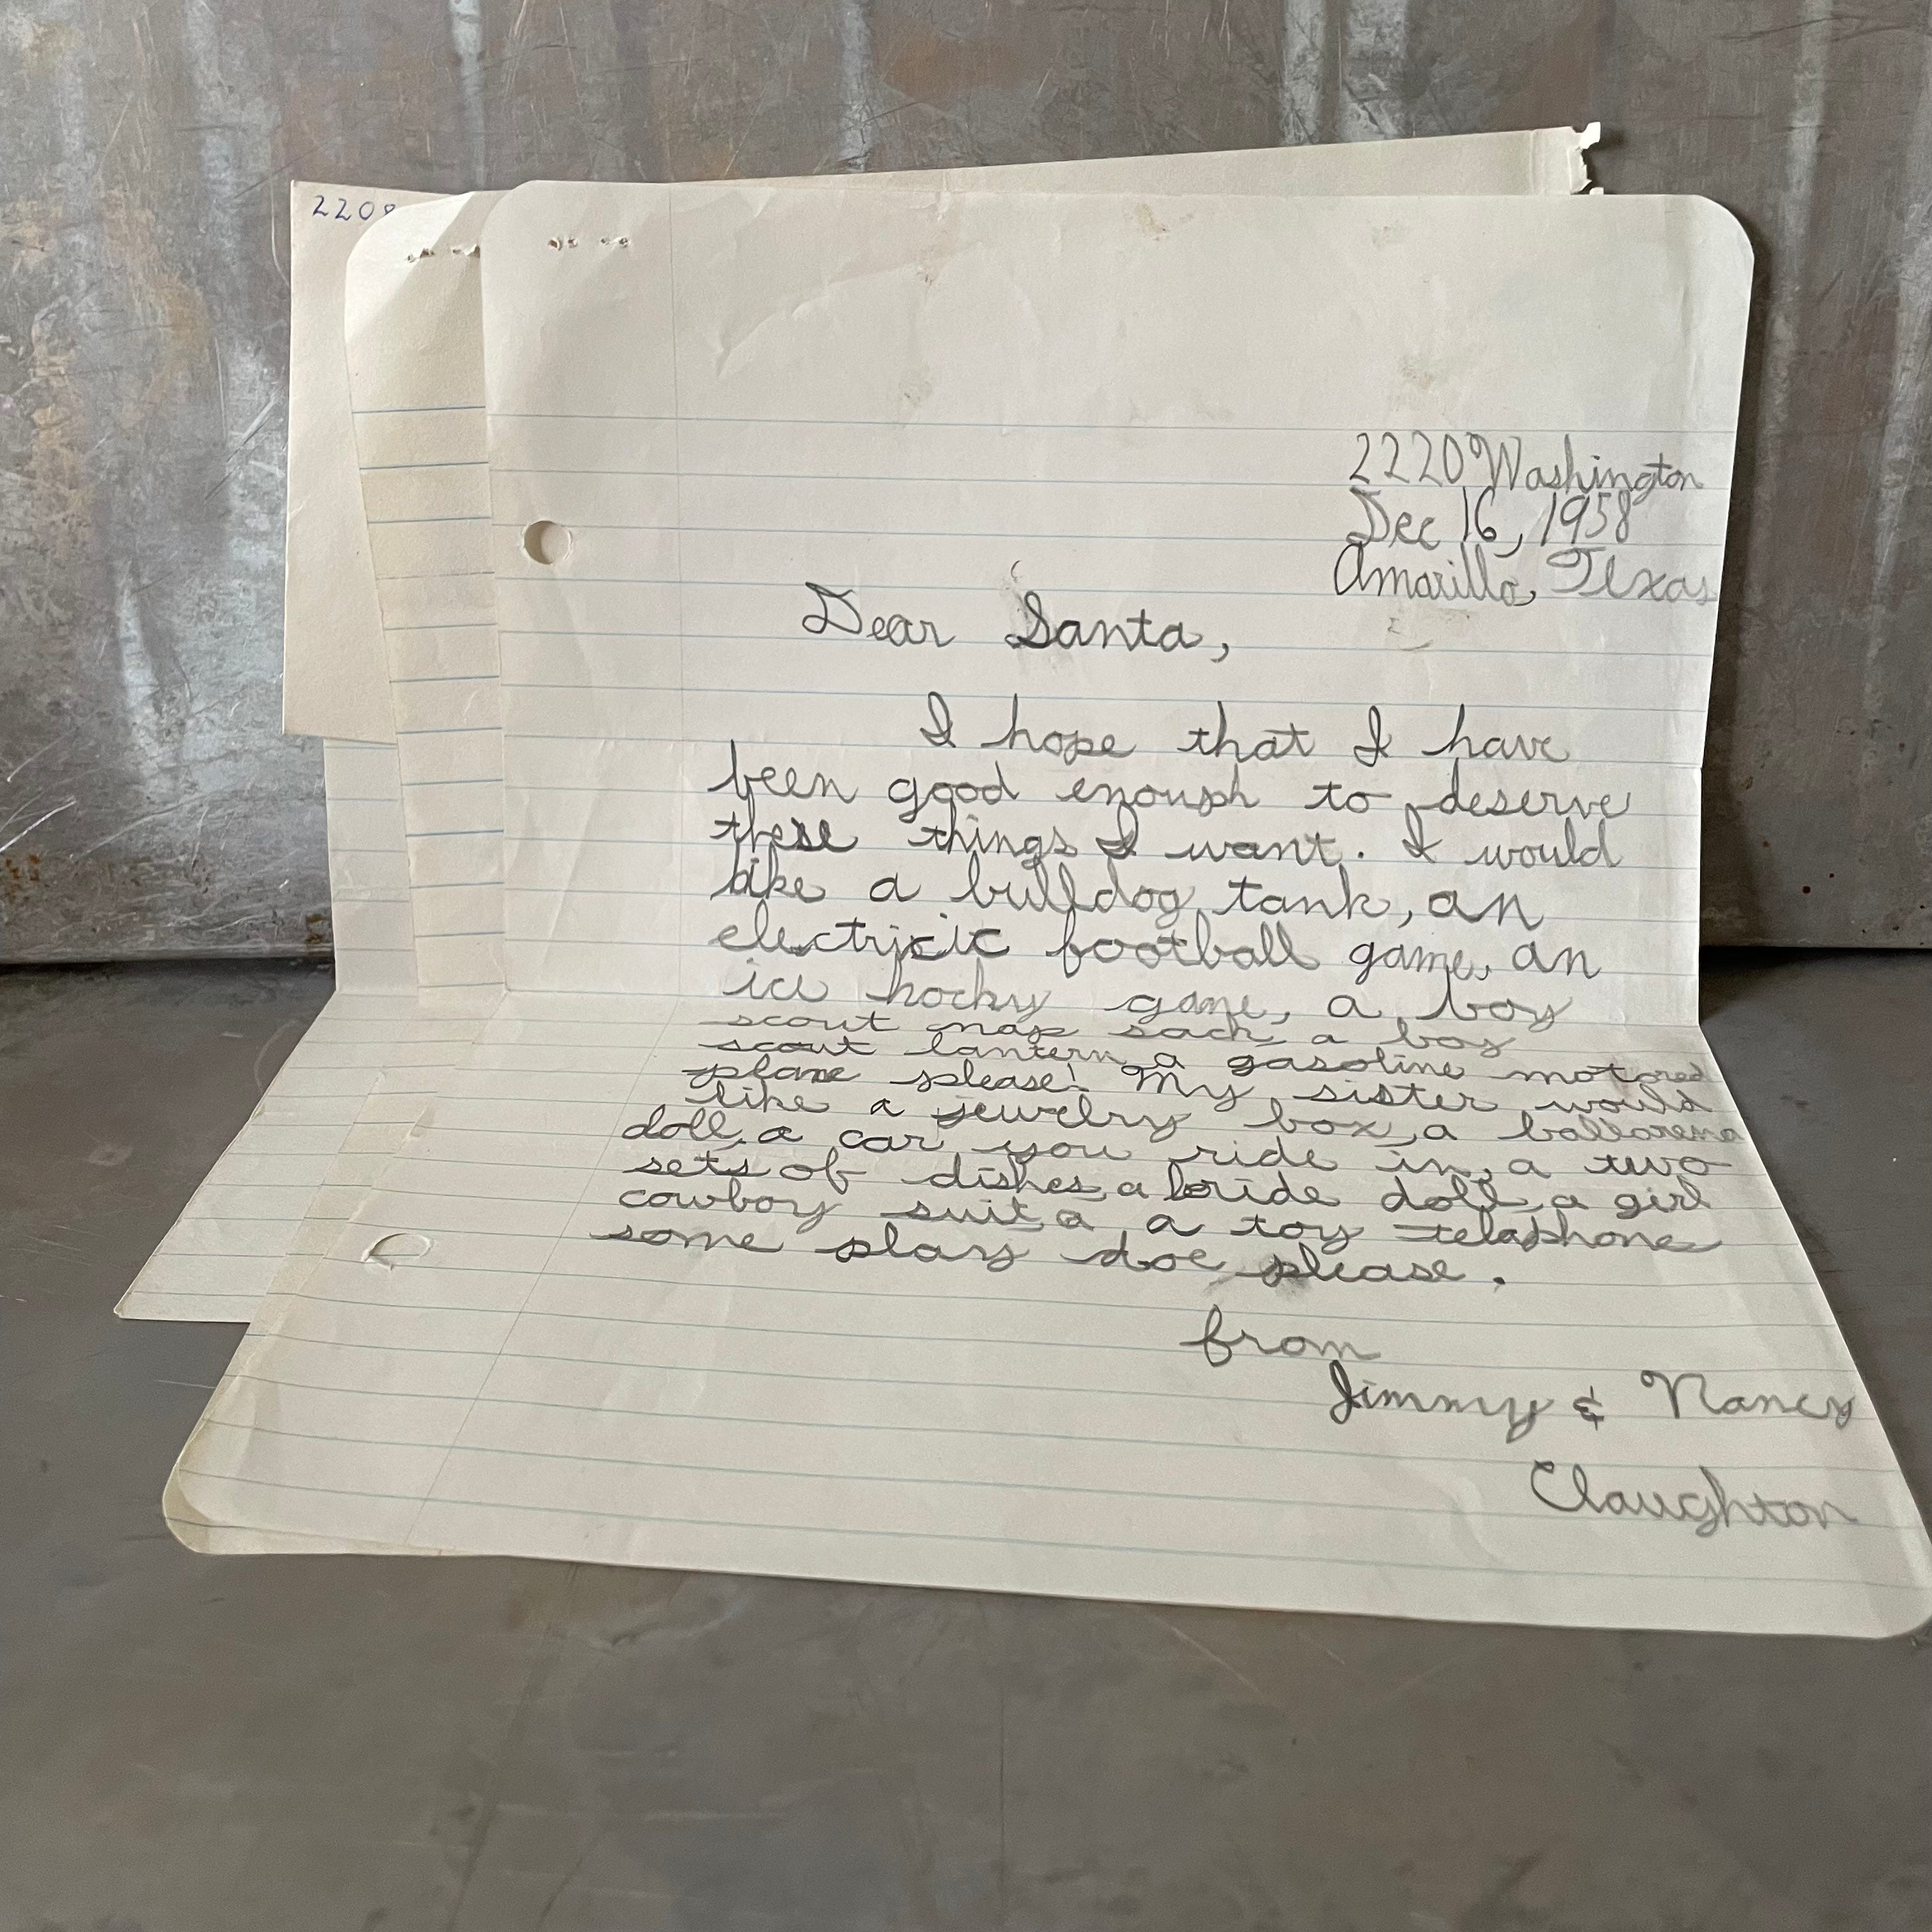 220
2220 Washington
Dec 16, 1958
Amarillo, Texas
Dear Santa,
I hope that I have
been good enough to deserve
these things I want. I would
like a bulldog tank, an
electric football game, an
ice hocky game, a boy
scout nap sack, a boy
scout lantern, a gasoline motored
plane please! My sister would
like a jewelry box, a ballarena
doll, a car you ride in, a two
sets of dishes, a bride doll, a girl
cowboy suit, a a toy telaphone
some play doe please.
from
Jimmy & Nancy
Claughton